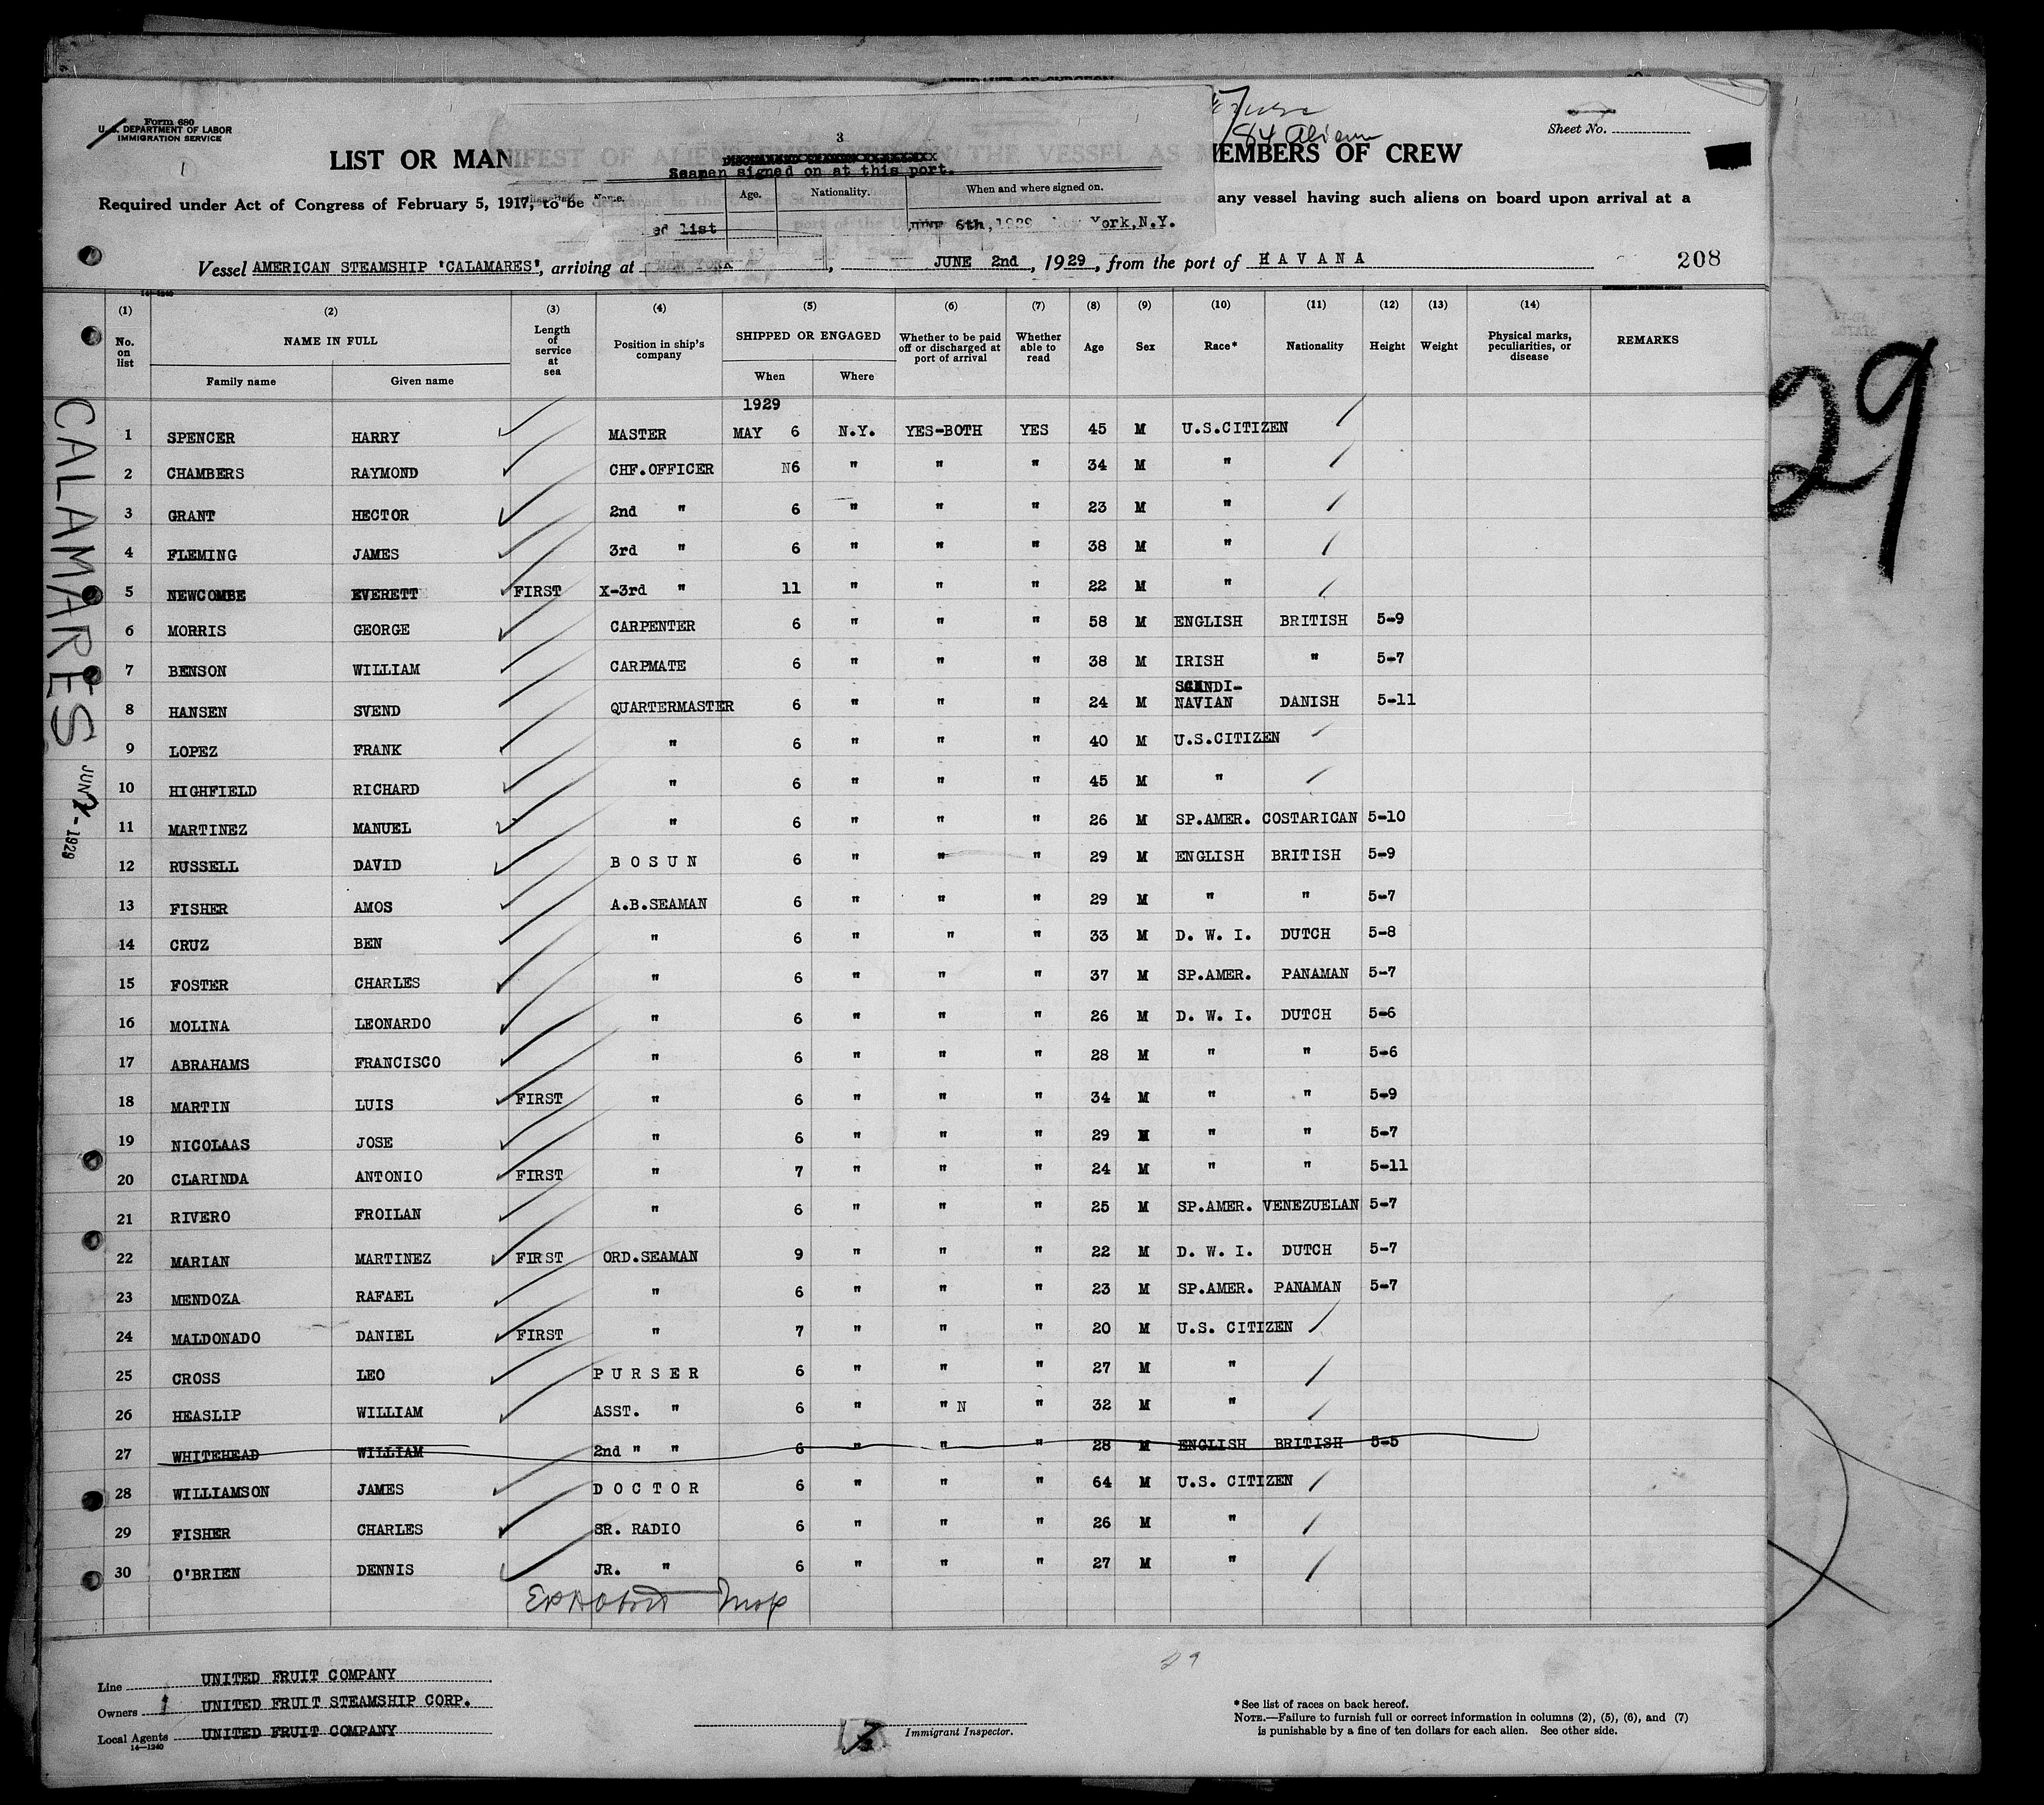 Form 680
U. S. DEPARTMENT OF LABOR
IMMIGRATION SERVICE
1
3
84 Aliens
Sheet No.
LIST OR MANIFEST OF ALIENS EMPLOYED ON THE VESSEL AS MEMBERS OF CREW
Seamen signed on at this port.
Name. Age. Nationality. When and where signed on.
Required under Act of Congress of February 5, 1917, to be any vessel having such aliens on board upon arrival at a
ed list June 6th, 1929 New York, N.Y.
Vessel AMERICAN STEAMSHIP 'CALAMARES', arriving at NEW YORK, JUNE 2nd, 1929, from the port of HAVANA 208
14-1240
(1) (2) (3) (4) (5) (6) (7) (8) (9) (10) (11) (12) (13) (14)
No. on list NAME IN FULL Length of service at sea Position in ship's company SHIPPED OR ENGAGED Whether to be paid off or discharged at port of arrival Whether able to read Age Sex Race* Nationality Height Weight Physical marks, peculiarities, or disease REMARKS
Family name Given name When Where
1929
1 SPENCER HARRY MASTER MAY 6 N.Y. YES-BOTH YES 45 M U.S.CITIZEN
2 CHAMBERS RAYMOND CHF.OFFICER N6 " " " 34 M "
3 GRANT HECTOR 2nd " 6 " " " 23 M "
4 FLEMING JAMES 3rd " 6 " " " 38 M "
5 NEWCOMBE EVERETT FIRST X-3rd " 11 " " " 22 M "
6 MORRIS GEORGE CARPENTER 6 " " " 58 M ENGLISH BRITISH 5-9
7 BENSON WILLIAM CARPMATE 6 " " " 38 M IRISH " 5-7
8 HANSEN SVEND QUARTERMASTER 6 " " " 24 M SCANDI-NAVIAN DANISH 5-11
9 LOPEZ FRANK " 6 " " " 40 M U.S.CITIZEN
10 HIGHFIELD RICHARD " 6 " " " 45 M "
11 MARTINEZ MANUEL " 6 " " " 26 M SP.AMER. COSTARICAN 5-10
12 RUSSELL DAVID BOSUN 6 " " " 29 M ENGLISH BRITISH 5-9
13 FISHER AMOS A.B.SEAMAN 6 " " " 29 M " " 5-7
14 CRUZ BEN " 6 " " " 33 M D. W. I. DUTCH 5-8
15 FOSTER CHARLES " 6 " " " 37 M SP.AMER. PANAMAN 5-7
16 MOLINA LEONARDO " 6 " " " 26 M D. W. I. DUTCH 5-6
17 ABRAHAMS FRANCISCO " 6 " " " 28 M " " 5-6
18 MARTIN LUIS FIRST " 6 " " " 34 M " " 5-9
19 NICOLAAS JOSE " 6 " " " 29 M " " 5-7
20 CLARINDA ANTONIO FIRST " 7 " " " 24 M " " 5-11
21 RIVERO FROILAN " 6 " " " 25 M SP.AMER. VENEZUELAN 5-7
22 MARIAN MARTINEZ FIRST ORD.SEAMAN 9 " " " 22 M D. W. I. DUTCH 5-7
23 MENDOZA RAFAEL " 6 " " " 23 M SP.AMER. PANAMAN 5-7
24 MALDONADO DANIEL FIRST " 7 " " " 20 M U.S. CITIZEN
25 CROSS LEO PURSER 6 " " " 27 M "
26 HEASLIP WILLIAM ASST. " 6 " " N " 32 M "
27 WHITEHEAD WILLIAM 2nd " " 6 " " " 28 M ENGLISH BRITISH 5-5
28 WILLIAMSON JAMES DOCTOR 6 " " " 64 M U.S. CITIZEN
29 FISHER CHARLES SR. RADIO 6 " " " 26 M "
30 O'BRIEN DENNIS JR. " 6 " " " 27 M "
29
Line UNITED FRUIT COMPANY
Owners UNITED FRUIT STEAMSHIP CORP.
Local Agents UNITED FRUIT COMPANY
14-1240
Immigrant Inspector.
*See list of races on back hereof.
NOTE.—Failure to furnish full or correct information in columns (2), (5), (6), and (7)
is punishable by a fine of ten dollars for each alien. See other side.
CALAMARES
JUN 2 - 1929
29